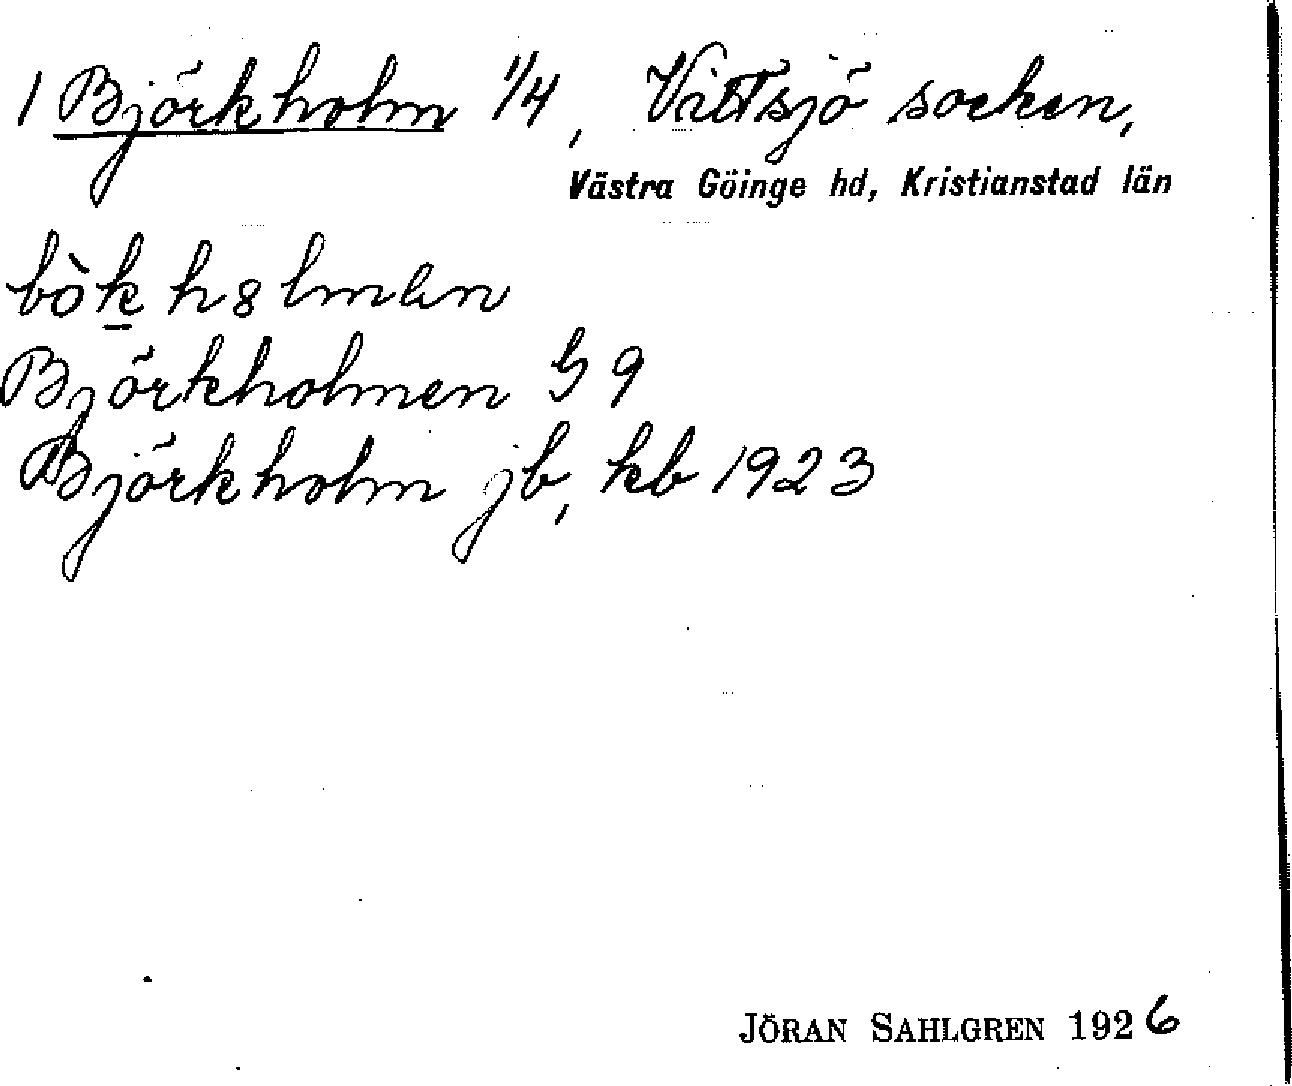 1 Björkholm 1/4, Vittsjö socken,
Västra Göinge hd, Kristianstad län
bòk h8lmen
Björkholmen G 9
Björkholm jb, kb 1923
JÖRAN SAHLGREN 1926